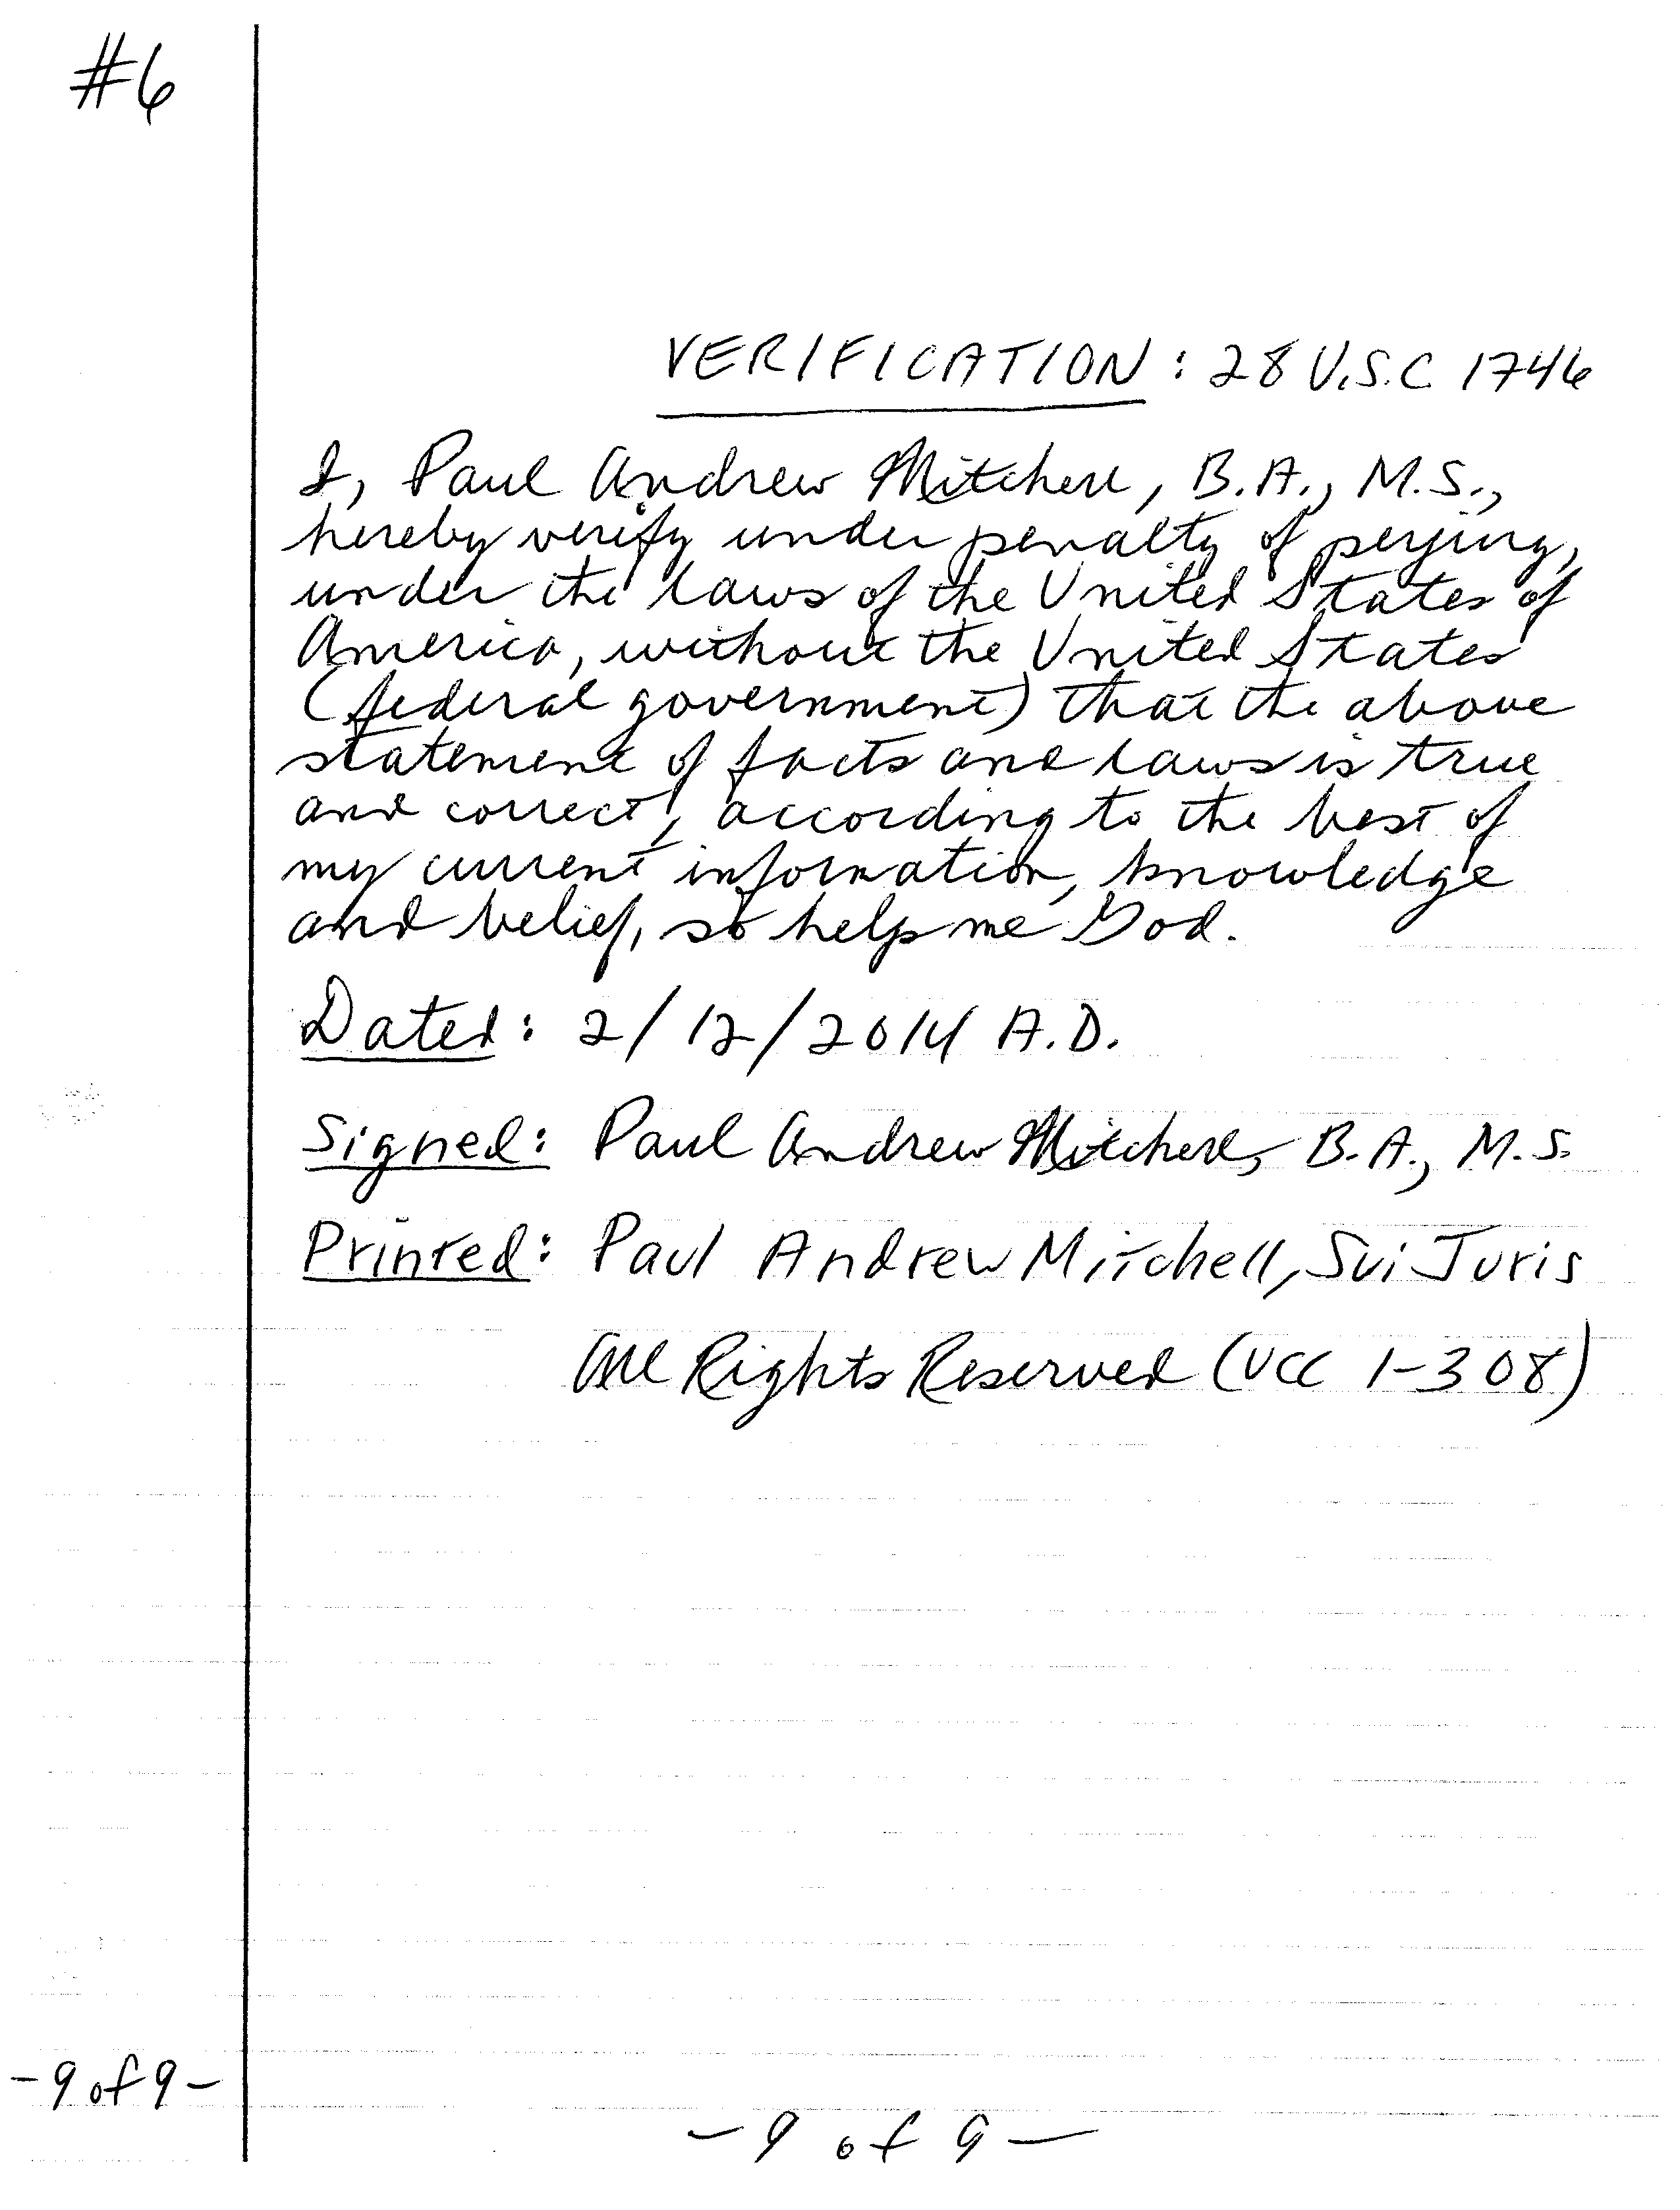 #6
VERIFICATION: 28 U.S.C. 1746
I, Paul Andrew Mitchell, B.A., M.S.,
hereby verify under penalty of perjury,
under the laws of the United States of
America, without the United States
(federal government) that the above
statement of facts and laws is true
and correct, according to the best of
my current information, knowledge
and belief, so help me God.
Dated: 2/12/2014 A.D.
Signed: Paul Andrew Mitchell, B.A., M.S.
Printed: Paul Andrew Mitchell, Sui Juris
All Rights Reserved (UCC 1-308)
-9 of 9-
-9 of 9-